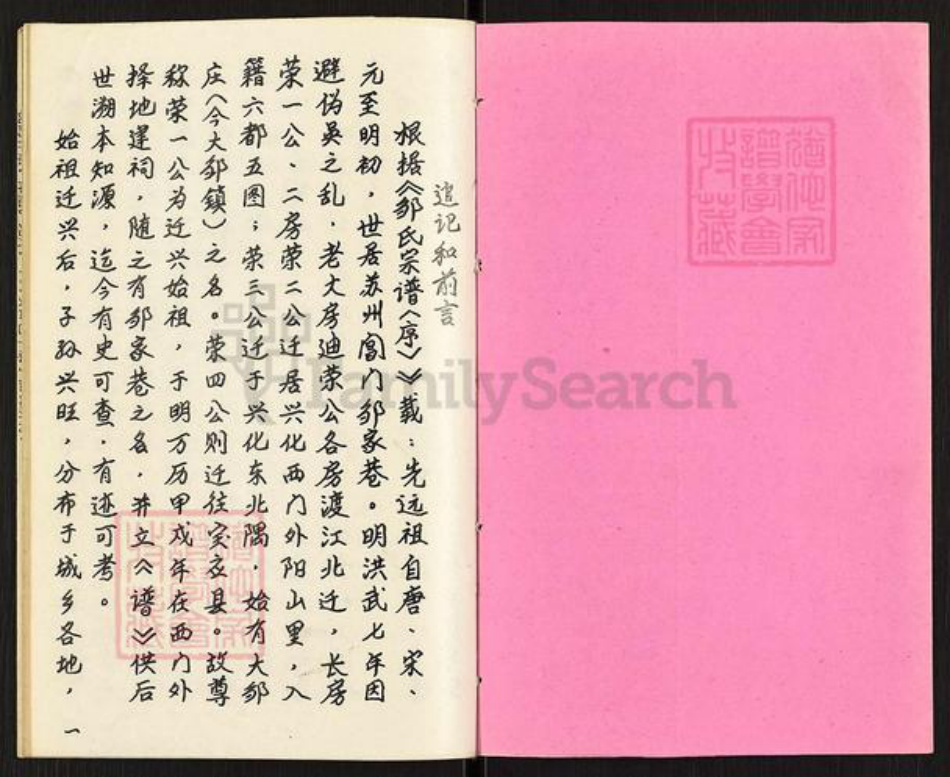 追记和前言
根据《邹氏宗谱〈序〉》载：先远祖自唐、宋、
元至明初，世居苏州阊门邹家巷。明洪武七年因
避伪吴之乱，老大房迪荣公各房渡江北迁，长房
荣一公、二房荣二公迁居兴化西门外阳山里，入
籍六都五图；荣三公迁于兴化东北隅，始有大邹
庄（今大邹镇）之名。荣四公则迁往宝应县。故尊
称荣一公为迁兴始祖，于明万历甲戍年在西门外
择地建祠，随之有邹家巷之名，并立《谱》供后
世溯本知源，迄今有史可查，有迹可考。
始祖迁兴后，子孙兴旺，分布于城乡各地，
一
FamilySearch